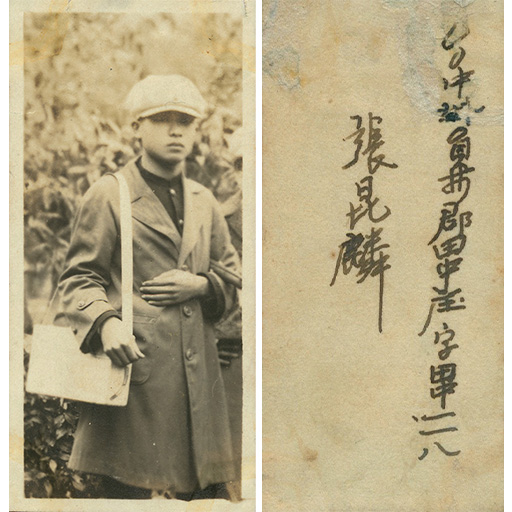 台中州員林郡田中庄字田中一二八
張昆麟